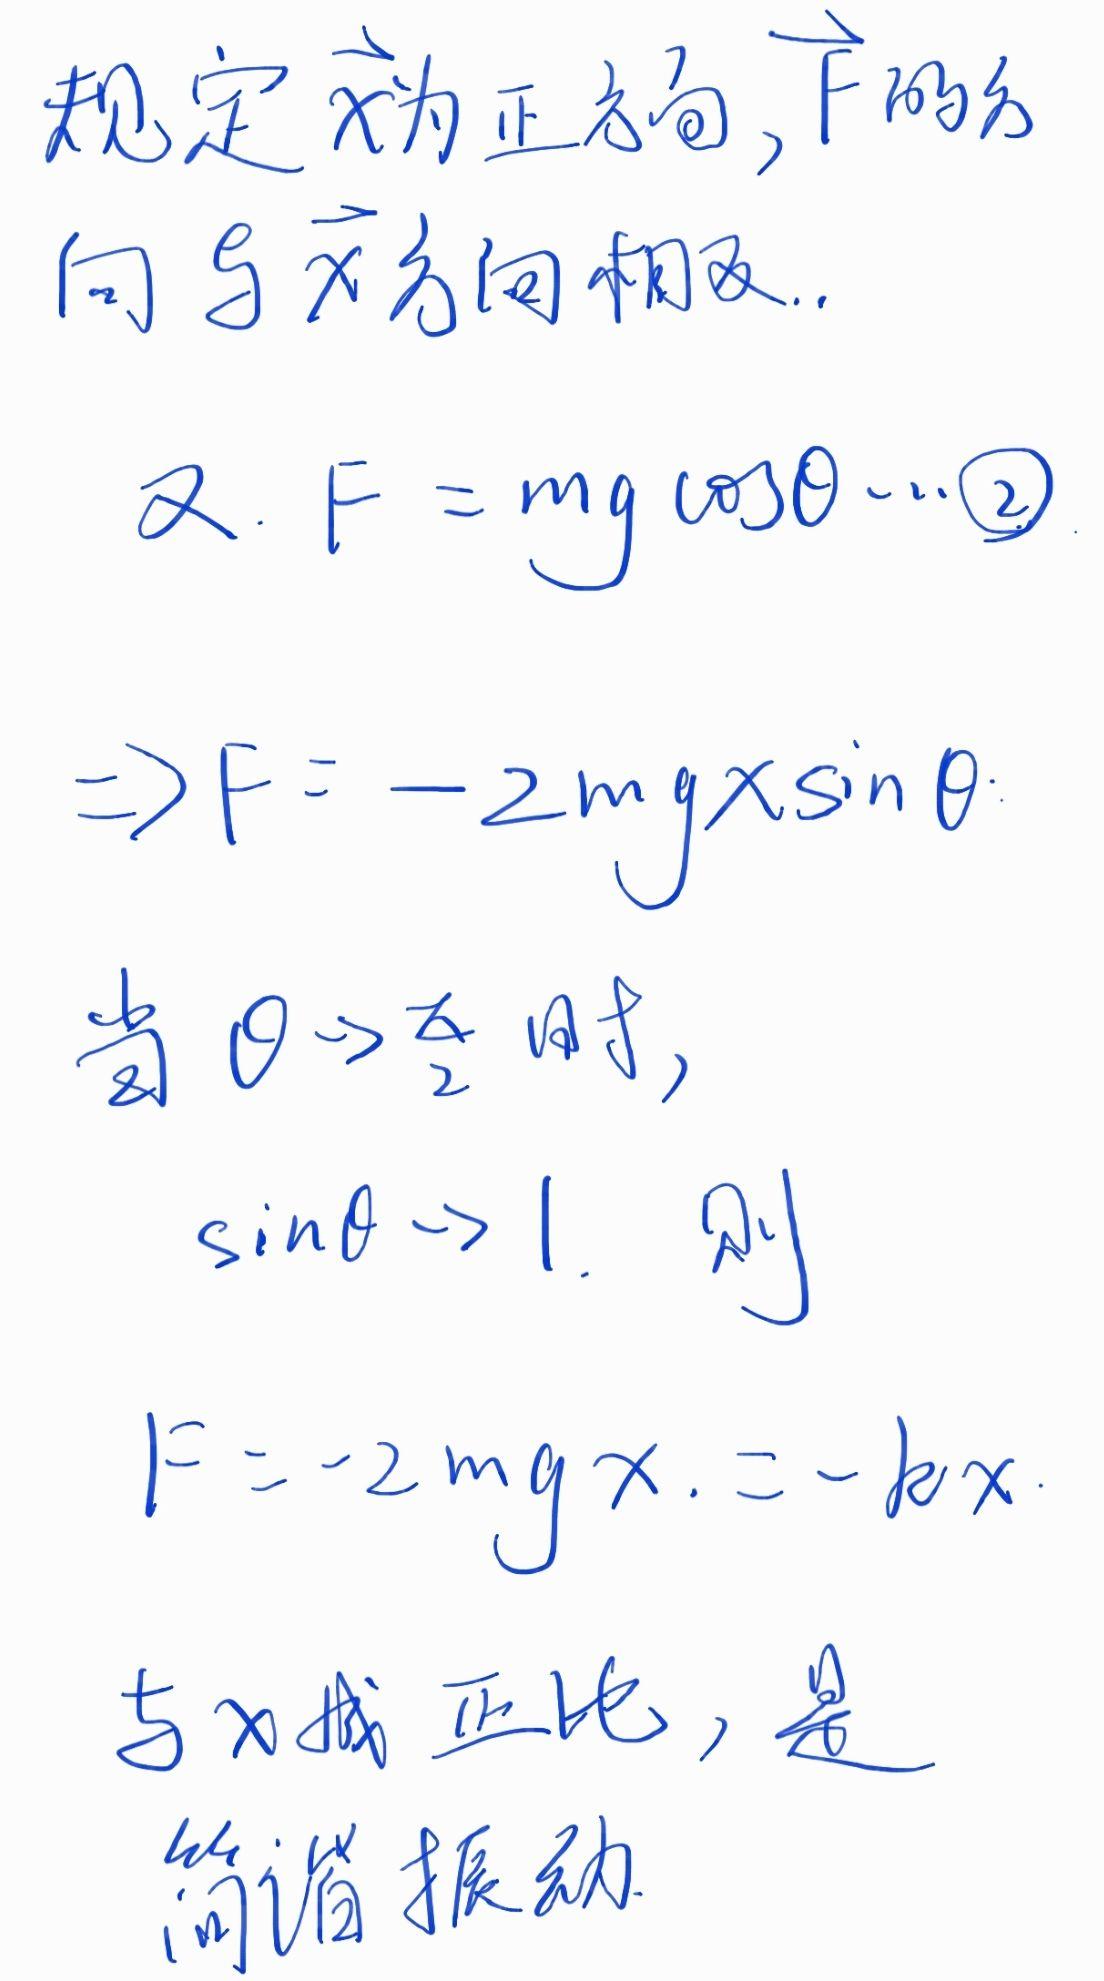 规定 x⃗为正方向,F⃗的方
向与x⃗方向相反..
又. F = mg cosθ ……②.
⇒F = -2mgxsinθ.
当θ→π/2时,
sinθ→1. 则
F = -2mgx. = -kx.
与x成正比,是
简谐振动.